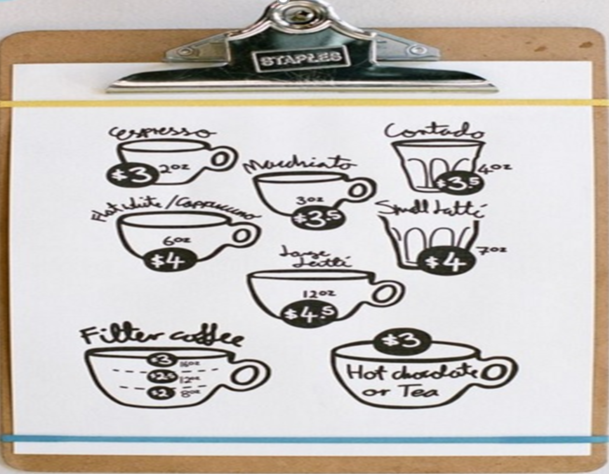 STAPLES
espresso
$3 2oz
Macchiato
3oz
$3.5
Contado
4oz
$3.5
Flat white / Cappuccino
6oz
$4
Small Latté
7oz
$4
Large
Latté
12oz
$4.5
Filter coffee
$3 16oz
$2.5 12oz
$2 8oz
$3
Hot chocolate
or Tea